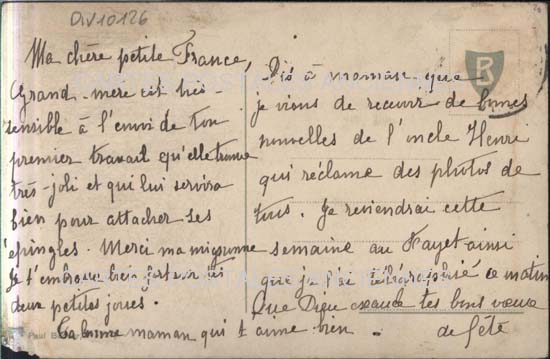 Div10126
Ma chère petite France,
Grand-mère est très
sensible à l'envoi de ton
premier travail qu'elle trouve
très-joli et qui lui servira
bien pour attacher ses
épingles. Merci ma mignonne
Je t'embrasse bien fort sur tes
deux petites joues.
Ta bonne maman qui t'aime bien.
Dis à maman que
je viens de recevoir de bonnes
nouvelles de l'oncle Henri
qui réclame des photos de
tous. Je reviendrai cette
semaine au Fayet ainsi
que je l'ai télégraphié ce matin
Que Dieu exauce tes bons vœux
de fête
B
Paul